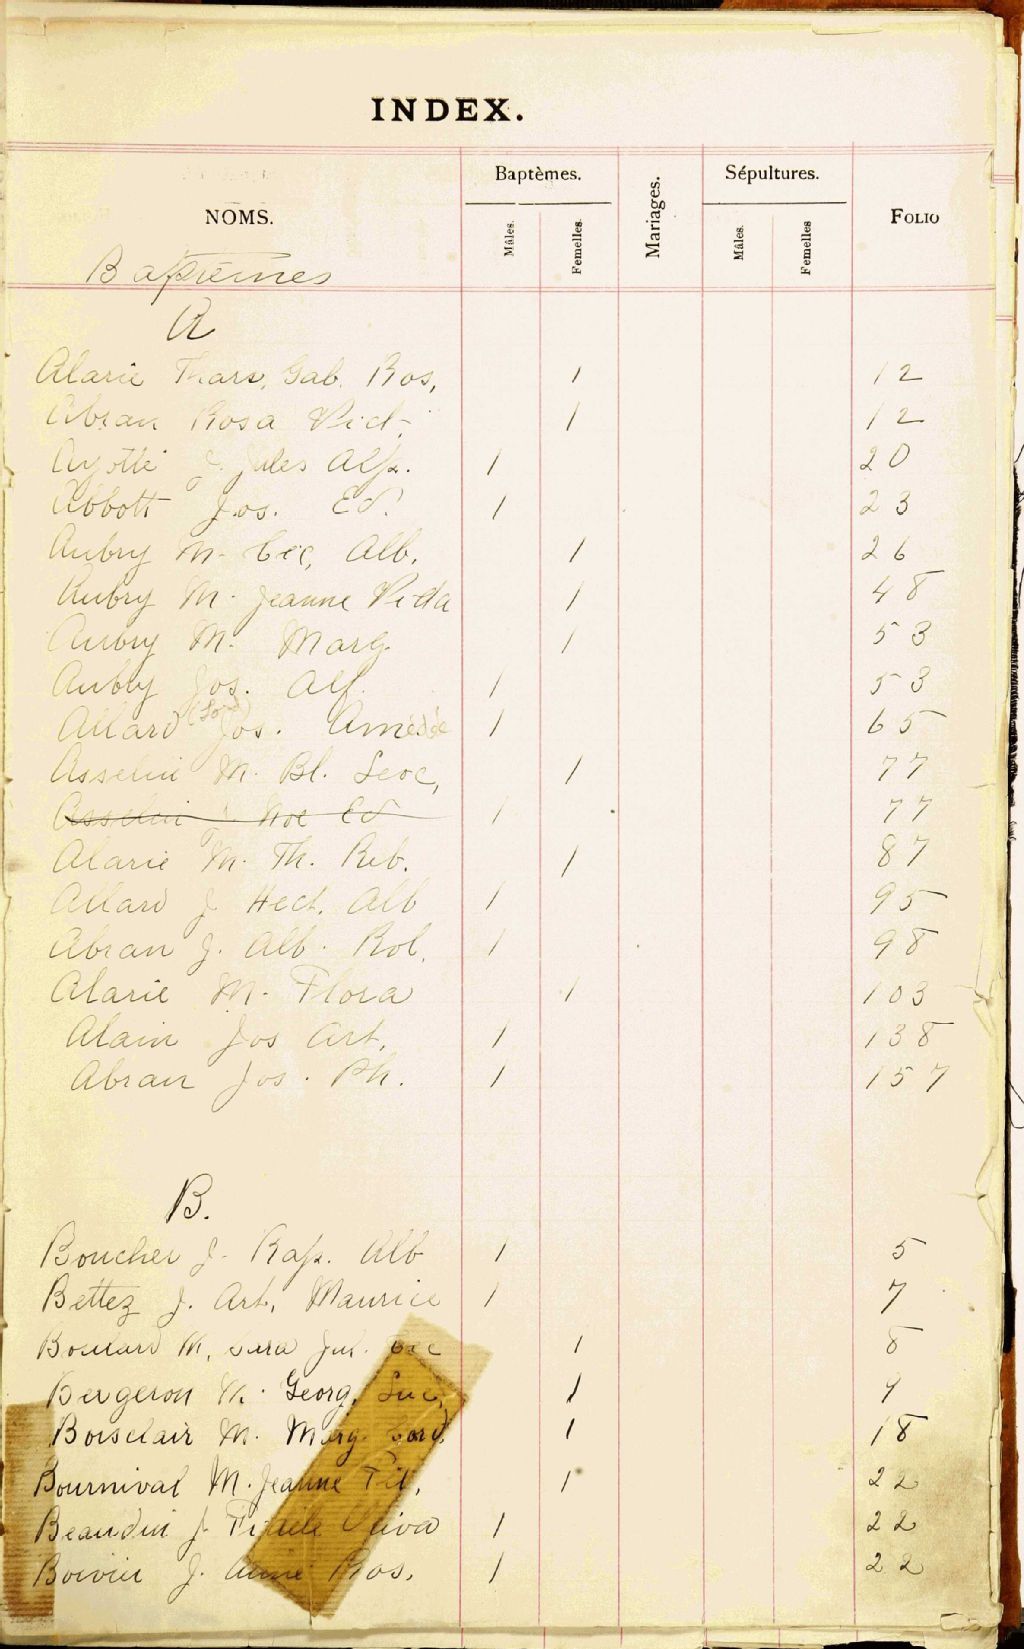 INDEX.
NOMS. Baptèmes. Mâles. Femelles. Mariages. Sépultures. Mâles. Femelles FOLIO
Baptêmes
A
Alarie Thars, Gab. Ros, 1 12
Abran Rosa Vict- 1 12
Ayotte J. Jules Alp. 1 20
Abbott Jos. Ed. 1 23
Aubry M. Cec, Alb. 1 26
Aubry M. Jeanne 1 48
Aubry M. Marg. 1 53
Aubry Jos. Alf. 1 53
Allard Jos. Amédée 1 65
Asselin M. Bl. Leoc, 1 77
Asselin J Noe Ed 1 77
Alarie M. Th. Reb. 1 87
Allard J Hect. Alb 1 95
Abran J. Alb. Rol. 1 98
Alarie M. Flora 1 103
Alain Jos Art. 1 138
Abran Jos. Ph. 1 157
B.
Boucher J. Rap. Alb 1 5
Bettez J. Art, Maurice 1 7
Boulard M, Jul. Cec 1 8
Bergeron M. Georg. Luc, 1 9
Boisclair M. Marg. 1 18
Bournival M. Jeanne 1 22
Beaudin J. Fidèle 1 22
Boivin J. Aimé Ros. 1 22